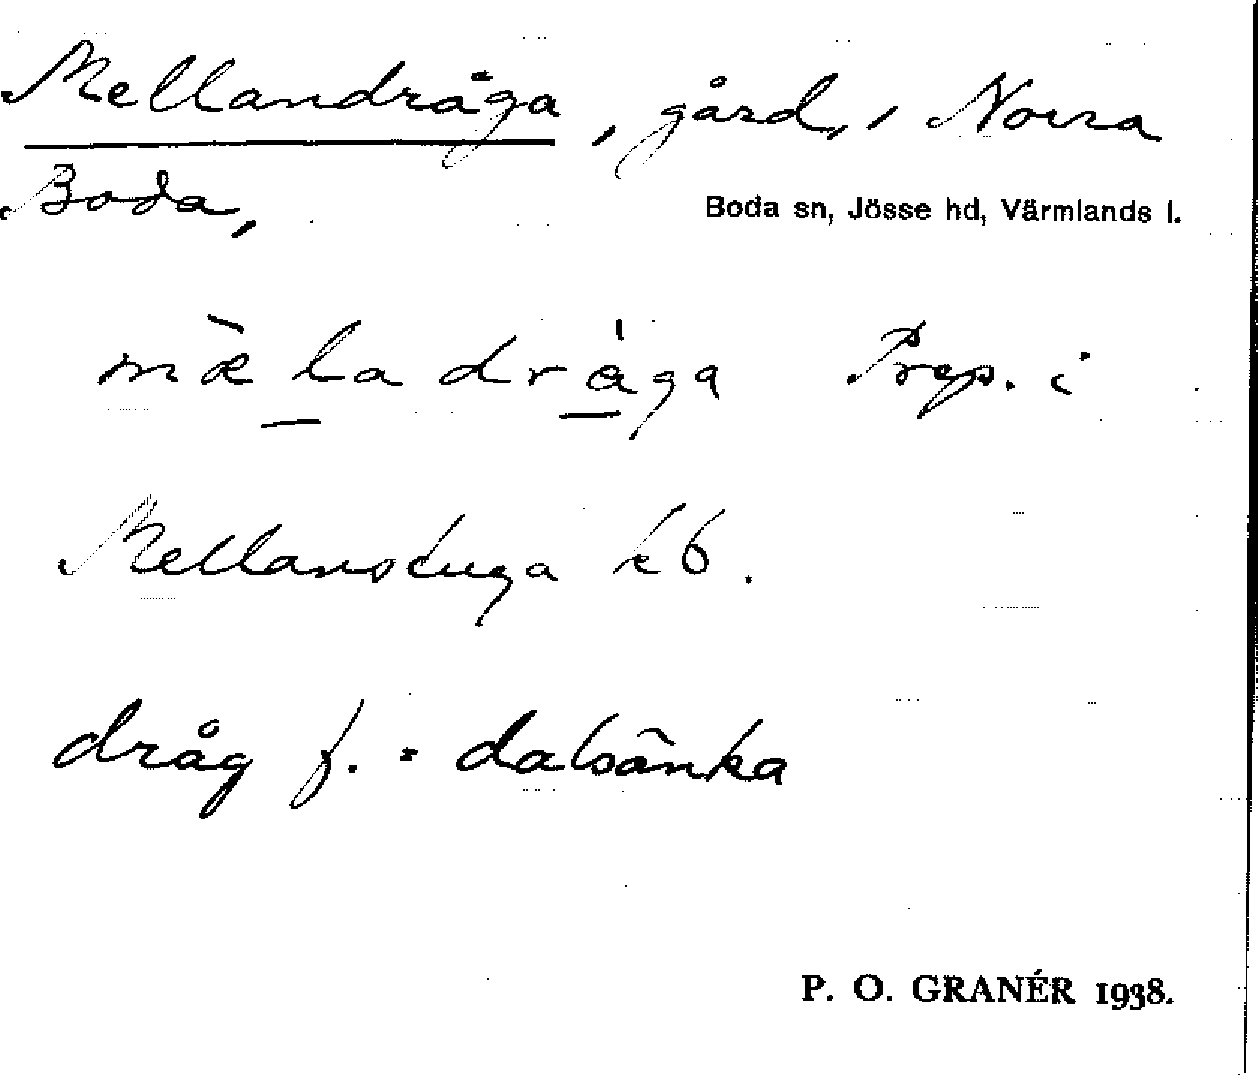 Mellandråga, gård, i Norra
Boda,
Boda sn, Jösse hd, Värmlands l.
mæ̀l̲a drǻ̲ga Prep. i
Mellanstuga kb.
dråg f. = dalsänka
P. O. GRANÉR 1938.